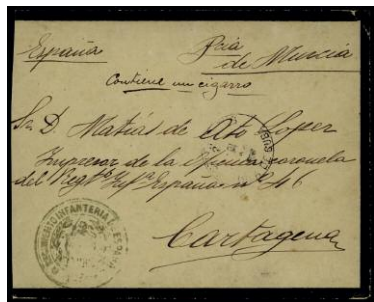 España Pcia de Murcia
Contiene un cigarro
Sr. D. Matias de Ato Lopez
Impresor de la oficina coronela
del Regto Infa España nº 46
Cartagena
REGIMIENTO INFANTERIA DE ESPAÑA